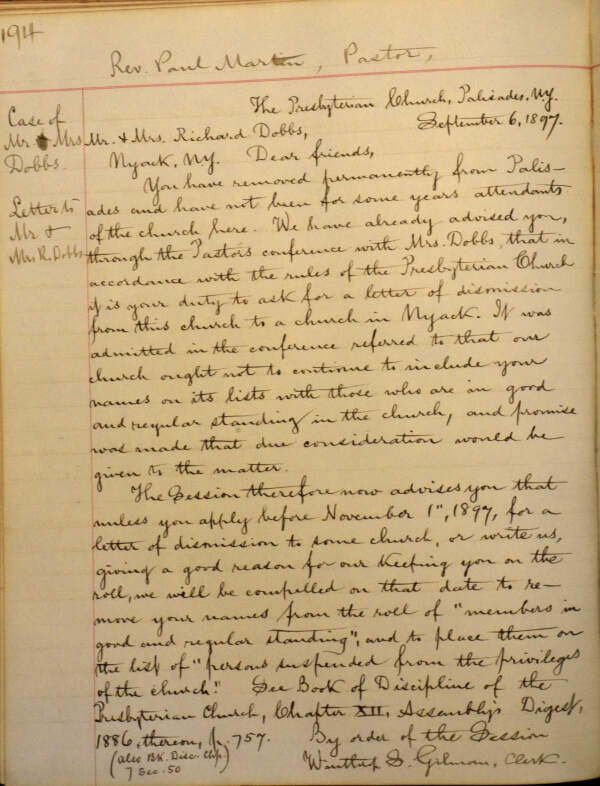 194
Rev. Paul Martin, Pastor,
The Presbyterian Church, Palisades, N.Y.
September 6, 1897.
Case of
Mr. & Mrs.
Dobbs.
Letter to
Mr. &
Mrs. R. Dobbs
Mr. & Mrs. Richard Dobbs,
Nyack, N.Y. Dear friends,
You have removed permanently from Palis-
ades and have not been for some years attendants
of the church here. We have already advised you,
through the Pastors conference with Mrs. Dobbs, that in
accordance with the rules of the Presbyterian Church
it is your duty to ask for a letter of dismission
from this church to a church in Nyack. It was
admitted in the conference referred to that our
church ought not to continue to include your
names on its lists with those who are in good
and regular standing in the church, and promise
was made that due consideration would be
given to the matter.
The Session therefore now advises you that
unless you apply before November 1st, 1897, for a
letter of dismission to some church, or write us,
giving a good reason for our keeping you on the
roll, we will be compelled on that date to re-
move your names from the roll of "members in
good and regular standing", and to place them on
the list of "persons suspended from the privileges
of the church." See Book of Discipline of the
Presbyterian Church, Chapter XII, Assembly's Digest,
1886, thereon, p. 757.
(also Bk. Disc. Chp.
7 Sec. 50)
By order of the Session
Winthrop S. Gilman, Clerk.